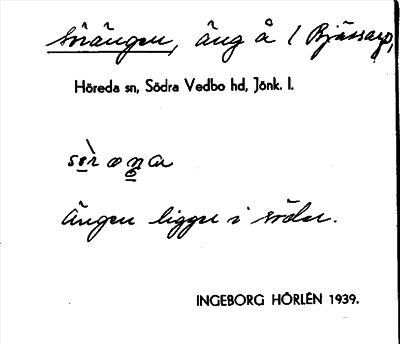 Sörängen, äng å (Bjässarp,
Höreda sn, Södra Vedbo hd, Jönk. l.
Ängen ligger i söder.
INGEBORG HÖRLÉN 1939.